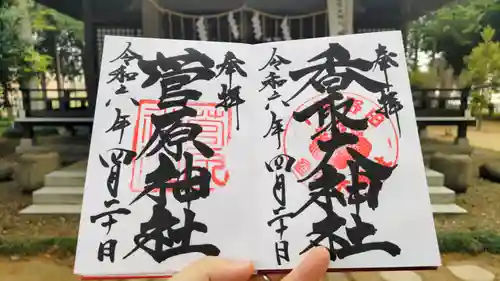 奉拝
香取神社
令和六年四月二十日
奉拝
菅原神社
令和六年四月二十日